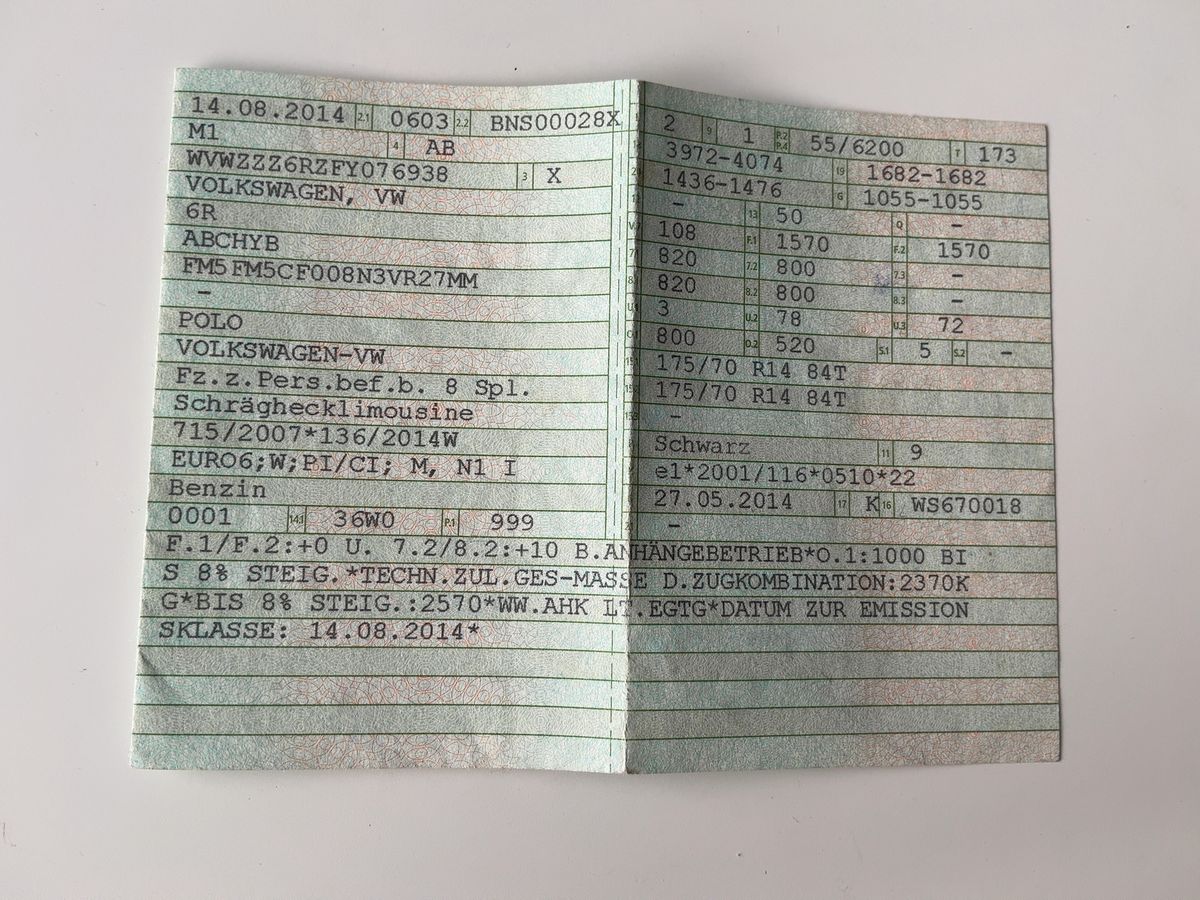 14.08.2014 2.1 0603 2.2 BNS00028X
M1 4 AB
WVWZZZ6RZFY076938 3 X
VOLKSWAGEN, VW
6R
ABCHYB
FM5FM5CF008N3VR27MM
-
POLO
VOLKSWAGEN-VW
Fz.z.Pers.bef.b. 8 Spl.
Schräghecklimousine
715/2007*136/2014W
EURO6;W;PI/CI; M, N1 I
Benzin
0001 14.1 36W0 P.1 999
2 9 1 P.2 P.4 55/6200 T 173
3972-4074 19 1682-1682
1436-1476 G 1055-1055
- 13 50 Q -
108 F.1 1570 F.2 1570
820 7.2 800 7.3 -
820 8.2 800 8.3 -
3 U.2 78 U.3 72
800 O.2 520 S.1 5 S.2 -
175/70 R14 84T
175/70 R14 84T
-
Schwarz 11 9
e1*2001/116*0510*22
27.05.2014 17 K 16 WS670018
-
F.1/F.2:+0 U. 7.2/8.2:+10 B.ANHÄNGEBETRIEB*O.1:1000 BI
S 8% STEIG.*TECHN.ZUL.GES-MASSE D.ZUGKOMBINATION:2370K
G*BIS 8% STEIG.:2570*WW.AHK LT.EGTG*DATUM ZUR EMISSION
SKLASSE: 14.08.2014*